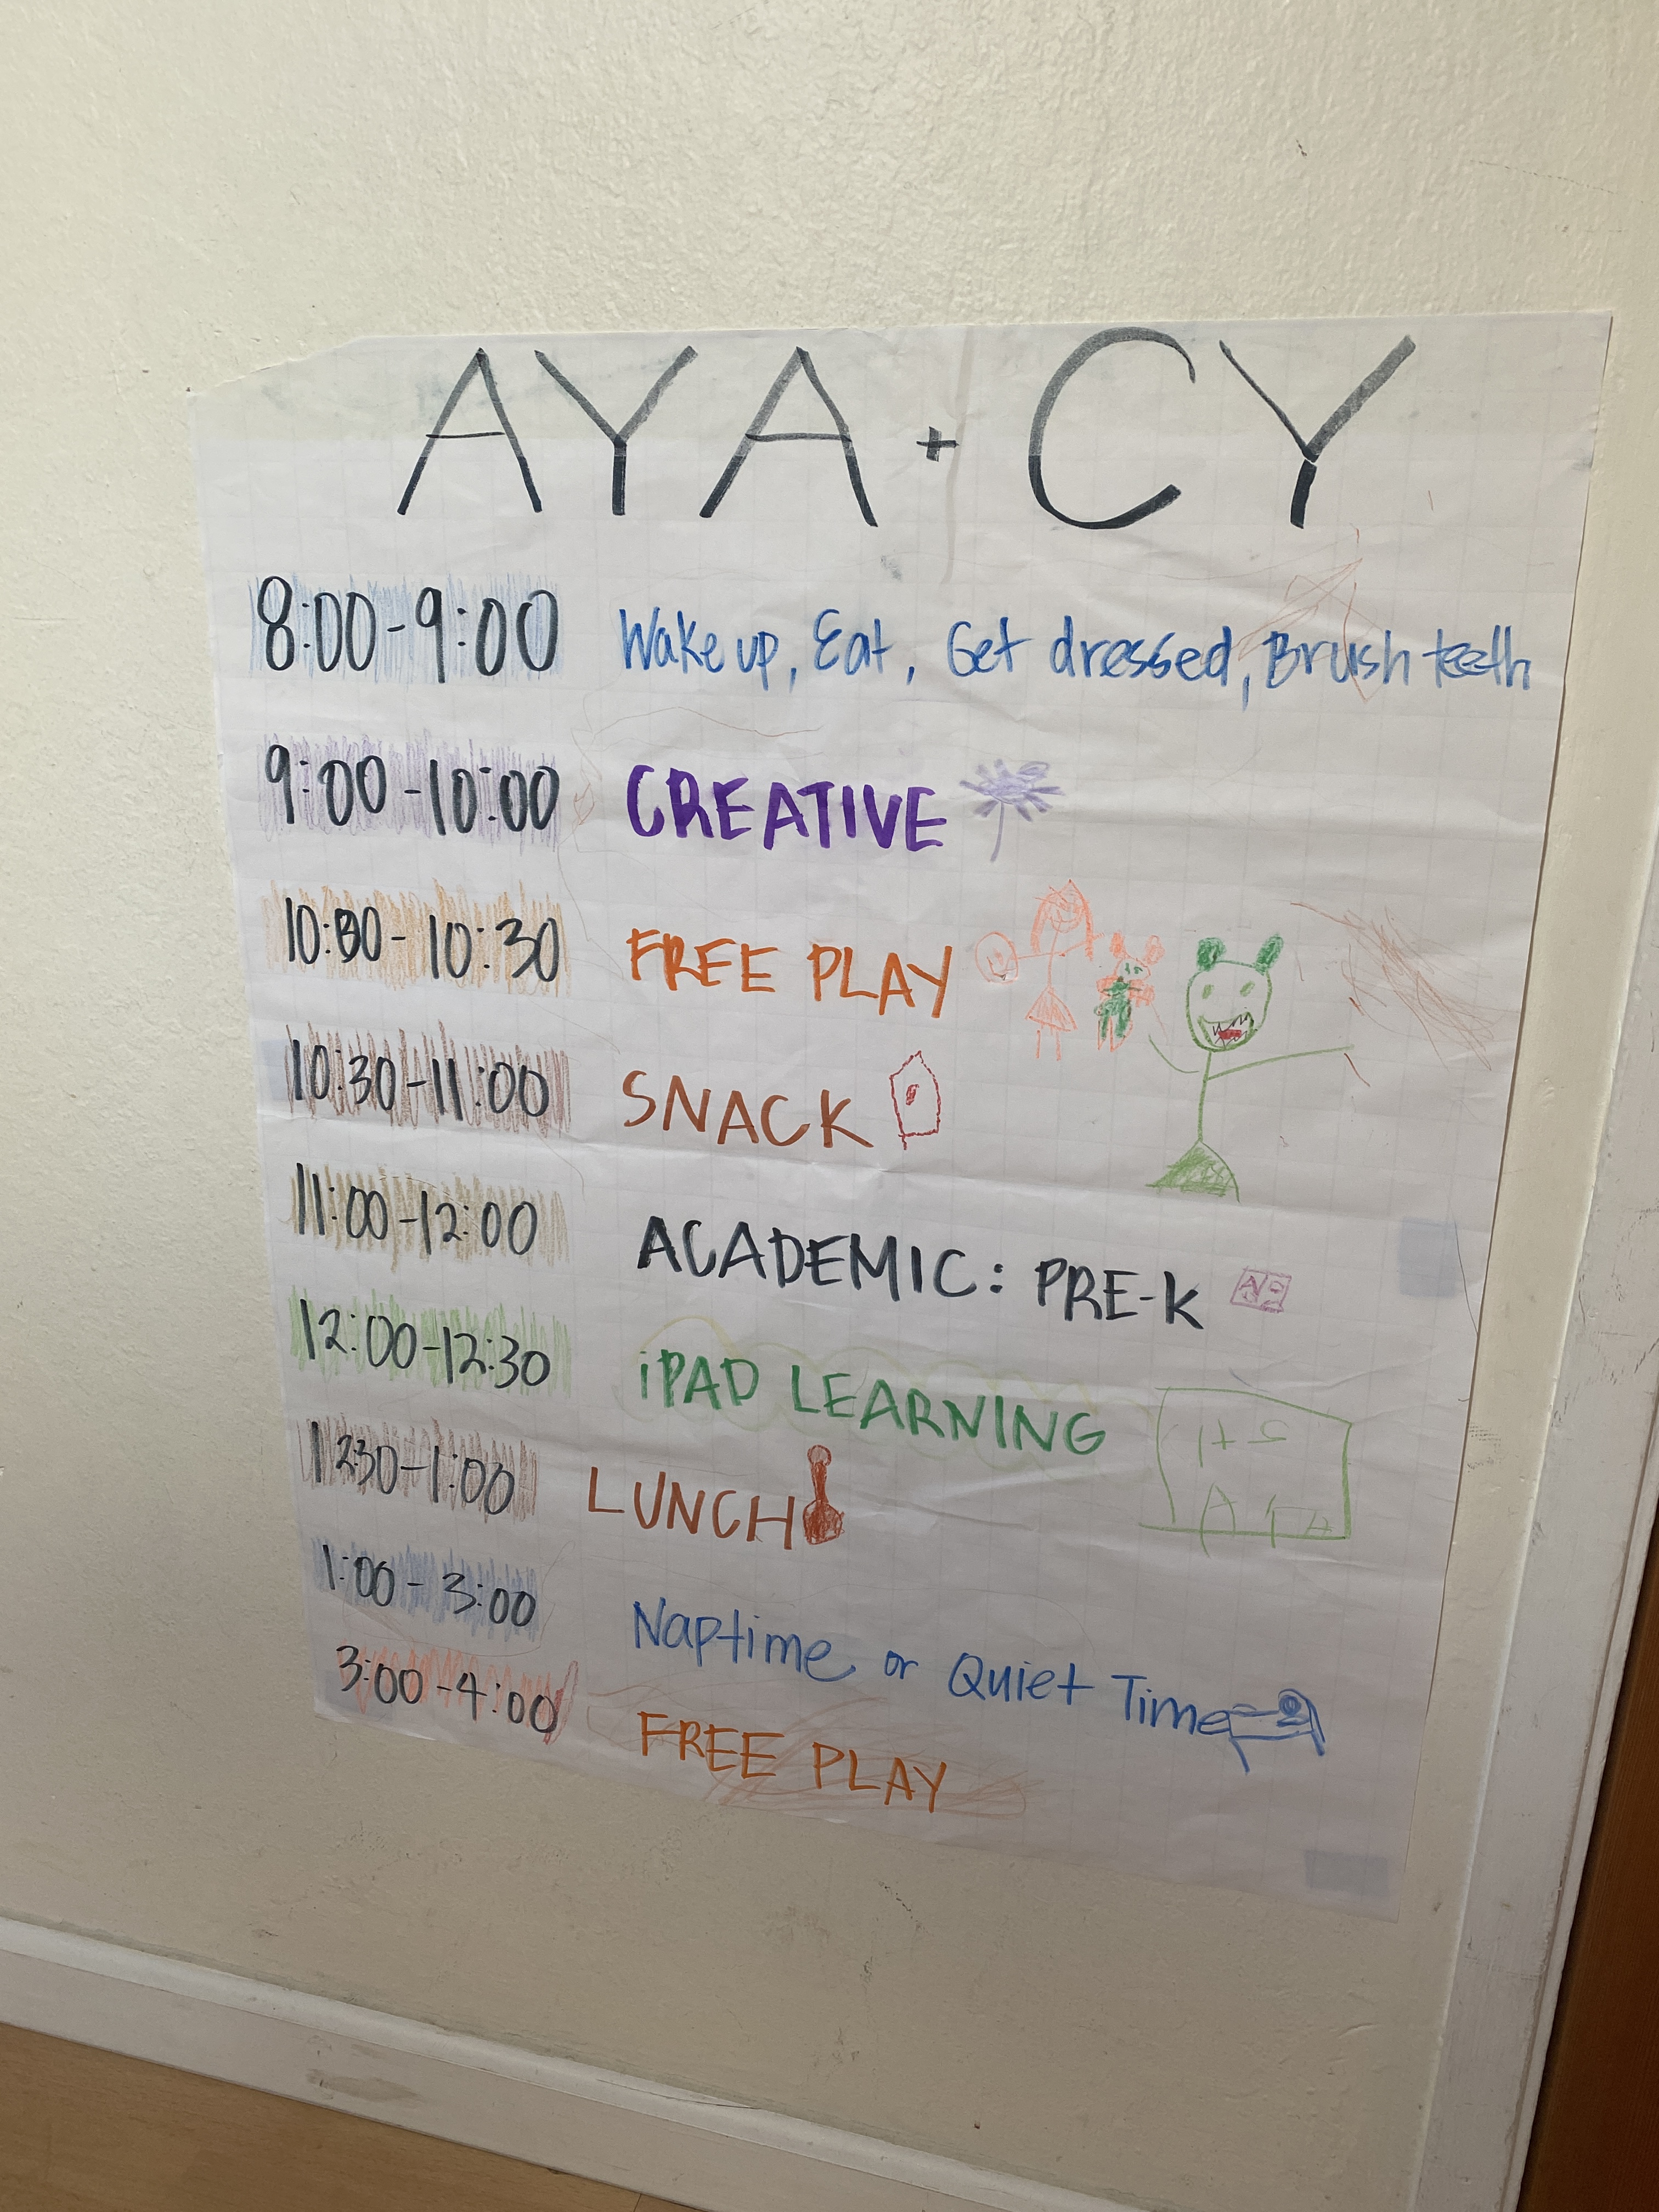 AYA + CY
8:00-9:00 Wake up, Eat, Get dressed, Brush teeth
9:00-10:00 CREATIVE
10:00-10:30 FREE PLAY
10:30-11:00 SNACK
11:00-12:00 ACADEMIC: PRE-K
12:00-12:30 iPAD LEARNING
1230-1:00 LUNCH
1:00-3:00 Naptime or Quiet Time
3:00-4:00 FREE PLAY